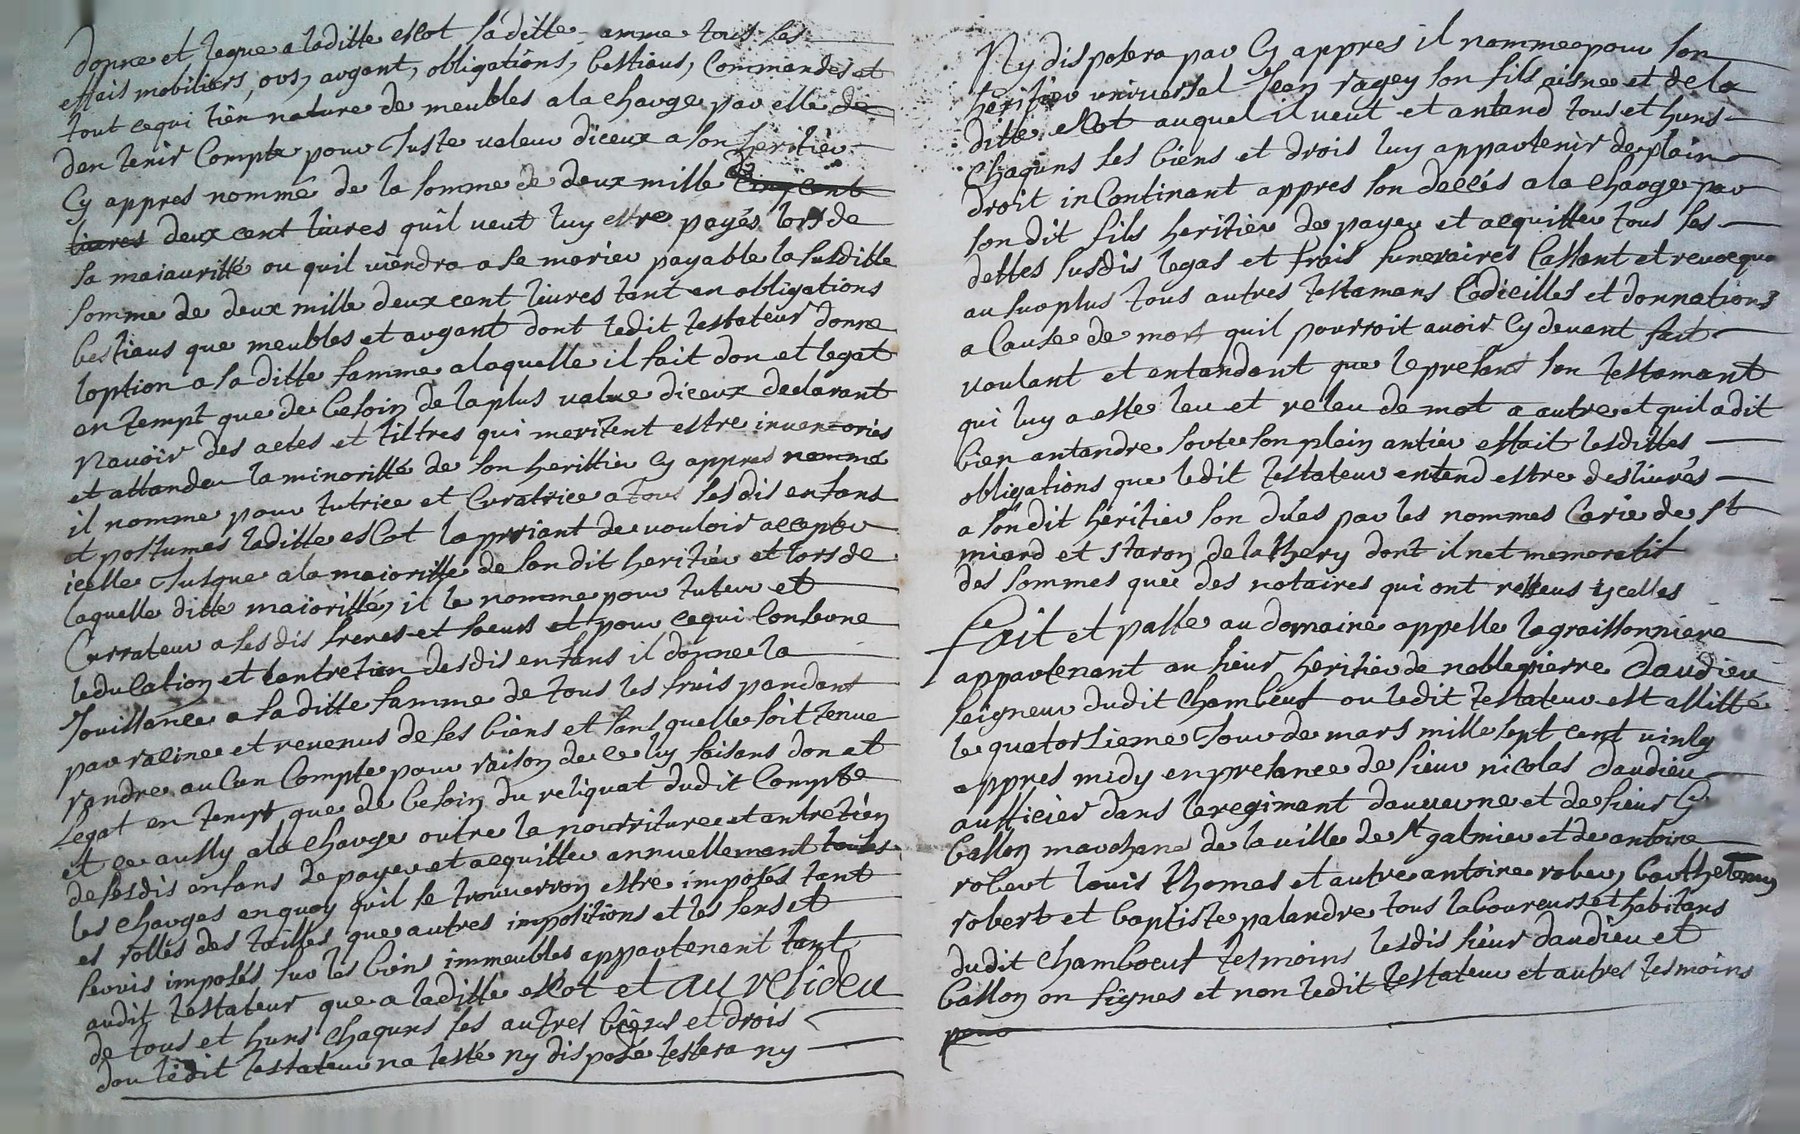 donne et legue a laditte escot saditte famme tous ses
effais mobiliers, ors, argant, obligations, bestiaus, Commandes et
tout cequi tien nature de meubles a la charge par elle de
den tenir Compte pour Juste valeur diceux a son heritier
Cy appres nommé de la somme de deux mille cinq cent
livres deux cent livres quil veut luy estre payés lors de
sa maiauritté ou quil viendra a se marier payable la susditte
somme de deux mille deux cent livres tant en obligations
bestiaus que meubles et argant dont ledit testateur donne
loption a saditte famme a laquelle il fait don et legat
en tempt que de besoin de la plus value diceux declarant
navoir des actes et tiltres qui meritent estre inventoriés
et attandu la minoritté de son herittier Cy appres nommé
il nomme pour tutrice et Curatrice a tous sesdis enfans
et postumes laditte escot la priant de vouloir accepter
icelle Jusque a la maioritte de son dit heritier et lors de
laquelle ditte maioritté, il le nomme pour tuteur et
Currateur a sesdis freres et soeurs et pour cequi Conserne
leducation et lentretien desdis enfans il donne la
Jouissance a saditte famme de tous les fruis pandant
par racine et revenus de ses biens et sans quelle soit tenue
randre aucun Compte pour raison de ce luy faisans don et
Legat en tempt que de besoin du reliquat dudit Compte
et ce aussy a la charge outre la nourriture et antretien
de sesdis enfans de payer et acquitter annuellement toutes
les charges en quoy quil se trouverron estre imposés tant
es rolles des tailles que autres impositions et les sens et
servis imposés sur les biens immeubles appartenant tant
audit testateur que a laditte escot et au residu
de tous et huns chaguns ses autres biens et drois
dou ledit testateur na testé ny disposé testera ny
Ny disposera par Cy appres il nomme pour son
heritier universel Jean ragey son fils aisne et de la
ditte escot auquel il veut et antand tous et huns
chaguns ses biens et drois luy appartenir de plain
droit inContinant appres son deccés a la charge par
son dit fils heritier de payer et acquitter tous ses
dettes susdis legas et frais funeraires Cassant et revocqua
au surplus tous autres testamans Codicilles et donnations
a Cause de mort quil pourroit avoir Cy devant fait
voulant et entandant que le presant son testamant
qui luy a este leu et releu de mot a autre et quil a dit
bien antandre sorte son plein antier effait lesdittes
obligations que ledit testateur entend estre deslivrés
a son dit héritier son dués par les nommes Carie de St
miard et staron de la thery dont il net memoratif
des sommes que des notaires qui ont resseus ycelles
fait et passe au domaine appelle la graissonniere
appartenant au sieur heritier de noble pierre daudieu
seigneur dudit chambeuf ou ledit testateur est allitté
le quatorsieme Jour de mars mille sept cent vinlg
appres midy en presance de sieur nicolas daudieu
aufficier dans le regimant dauvergne et de sieur Cy
Gallon marchand de la ville de St galmier et de antoine
robert louis thomas et autre antoine robert, barthelemy
robert et baptiste palandre tous laboureurs et habitans
dudit chamboeuf tesmoins lesdis sieur daudieu et
Gallon on signes et non ledit testateur et autres tesmoins